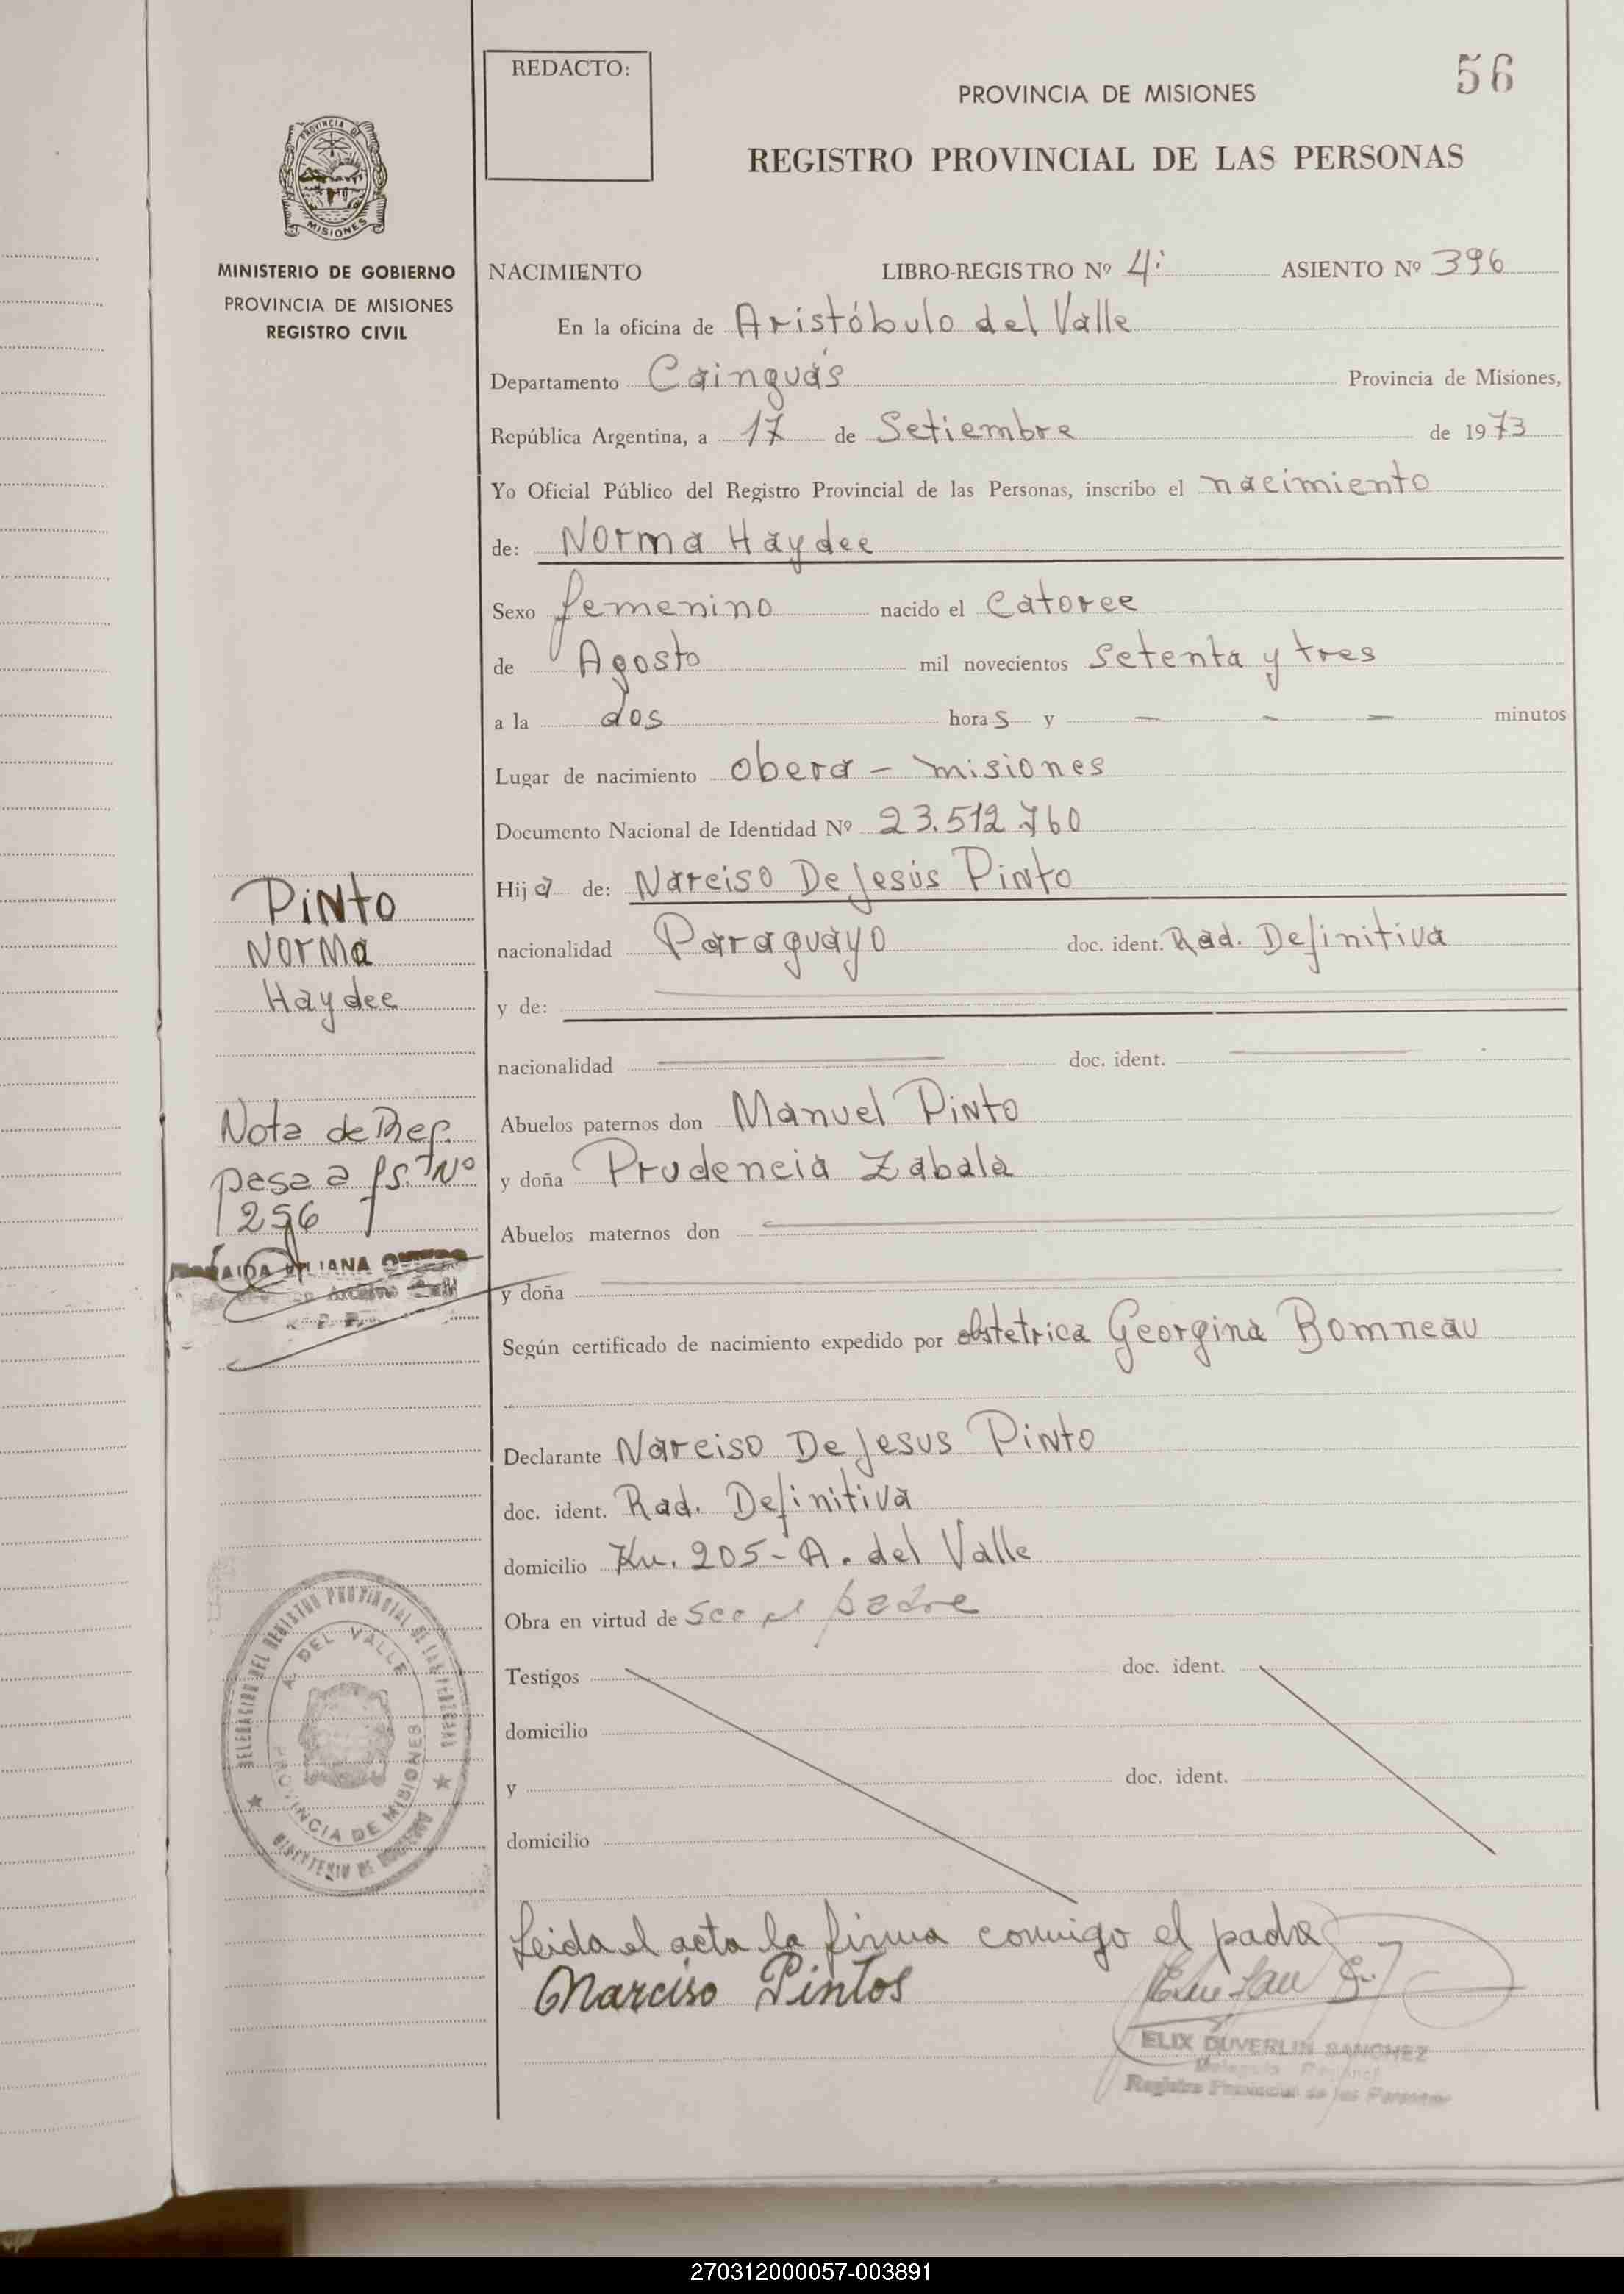 REDACTO:
56
PROVINCIA DE MISIONES
REGISTRO PROVINCIAL DE LAS PERSONAS
PROVINCIA DE
MISIONES
MINISTERIO DE GOBIERNO
PROVINCIA DE MISIONES
REGISTRO CIVIL
NACIMIENTO LIBRO-REGISTRO Nº 4: ASIENTO Nº 396
En la oficina de Aristóbulo del Valle
Departamento Cainguás Provincia de Misiones,
República Argentina, a 17 de Setiembre de 1973
Yo Oficial Público del Registro Provincial de las Personas, inscribo el nacimiento
de: Norma Haydee
Sexo femenino nacido el Catorce
de Agosto mil novecientos setenta y tres
a la dos horas y — — — minutos
Lugar de nacimiento Obera - misiones
Documento Nacional de Identidad Nº 23.512.760
Hija de: Narciso De Jesús Pinto
nacionalidad Paraguayo doc. ident. Rad. Definitiva
y de:
nacionalidad doc. ident.
Abuelos paternos don Manuel Pinto
y doña Prudencia Zabala
Abuelos maternos don
y doña
Según certificado de nacimiento expedido por obstetrica Georgina Bomneau
Declarante Narciso De Jesus Pinto
doc. ident. Rad. Definitiva
domicilio Km. 205 - A. del Valle
Obra en virtud de ser el padre
Testigos doc. ident.
domicilio
y doc. ident.
domicilio
Leida el acta la firma conmigo el padre
Narciso Pintos
ELIX DUVERLIN SANCHEZ
Registro Provincial de las Personas
PINTO
NORMA
Haydee
Nota de Ref.
pasa a fs. Nº
256
LILIANA
Archivo
DELEGACION DEL REGISTRO PROVINCIAL DE LAS PERSONAS
A. DEL VALLE
PROVINCIA DE MISIONES
MINISTERIO DE GOBIERNO
270312000057-003891